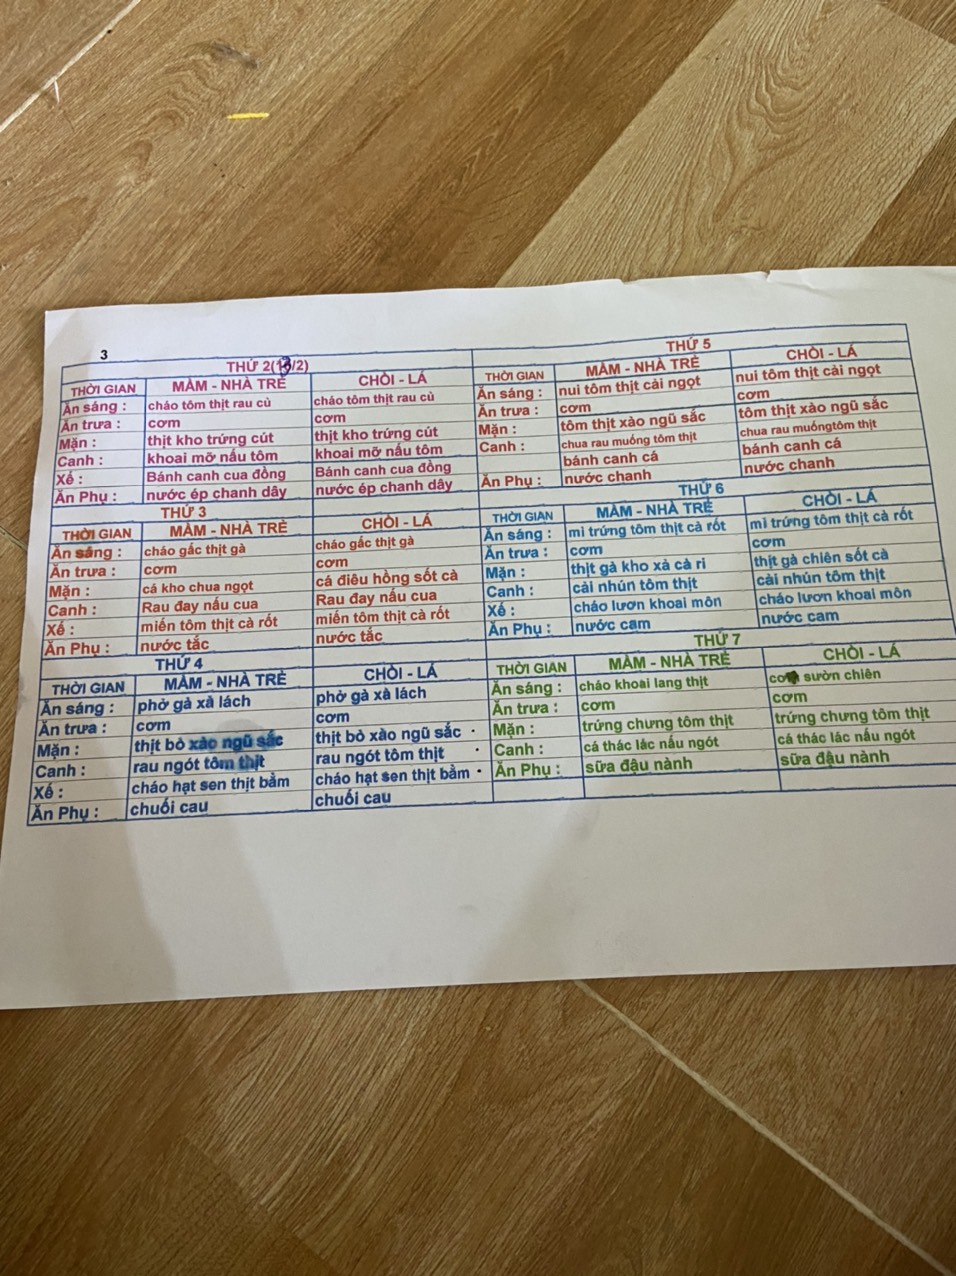 3
THỨ 2(13/2)
THỜI GIAN MẦM - NHÀ TRẺ CHỒI - LÁ
Ăn sáng : cháo tôm thịt rau củ cháo tôm thịt rau củ
Ăn trưa : cơm cơm
Mặn : thịt kho trứng cút thịt kho trứng cút
Canh : khoai mỡ nấu tôm khoai mỡ nấu tôm
Xế : Bánh canh cua đồng Bánh canh cua đồng
Ăn Phụ : nước ép chanh dây nước ép chanh dây
THỨ 3
THỜI GIAN MẦM - NHÀ TRẺ CHỒI - LÁ
Ăn sáng : cháo gấc thịt gà cháo gấc thịt gà
Ăn trưa : cơm cơm
Mặn : cá kho chua ngọt cá điêu hồng sốt cà
Canh : Rau đay nấu cua Rau đay nấu cua
Xế : miến tôm thịt cà rốt miến tôm thịt cà rốt
Ăn Phụ : nước tắc nước tắc
THỨ 4
THỜI GIAN MẦM - NHÀ TRẺ CHỒI - LÁ
Ăn sáng : phở gà xà lách phở gà xà lách
Ăn trưa : cơm cơm
Mặn : thịt bò xào ngũ sắc thịt bò xào ngũ sắc
Canh : rau ngót tôm thịt rau ngót tôm thịt
Xế : cháo hạt sen thịt bằm cháo hạt sen thịt bằm
Ăn Phụ : chuối cau chuối cau
THỨ 5
THỜI GIAN MẦM - NHÀ TRẺ CHỒI - LÁ
Ăn sáng : nui tôm thịt cải ngọt nui tôm thịt cải ngọt
Ăn trưa : cơm cơm
Mặn : tôm thịt xào ngũ sắc tôm thịt xào ngũ sắc
Canh : chua rau muống tôm thịt chua rau muốngtôm thịt
bánh canh cá bánh canh cá
Ăn Phụ : nước chanh nước chanh
THỨ 6
THỜI GIAN MẦM - NHÀ TRẺ CHỒI - LÁ
Ăn sáng : mì trứng tôm thịt cà rốt mì trứng tôm thịt cà rốt
Ăn trưa : cơm cơm
Mặn : thịt gà kho xả cà ri thịt gà chiên sốt cà
Canh : cải nhún tôm thịt cải nhún tôm thịt
Xế : cháo lươn khoai môn cháo lươn khoai môn
Ăn Phụ : nước cam nước cam
THỨ 7
THỜI GIAN MẦM - NHÀ TRẺ CHỒI - LÁ
Ăn sáng : cháo khoai lang thịt cơm sườn chiên
Ăn trưa : cơm cơm
Mặn : trứng chưng tôm thịt trứng chưng tôm thịt
Canh : cá thác lác nấu ngót cá thác lác nấu ngót
Ăn Phụ : sữa đậu nành sữa đậu nành